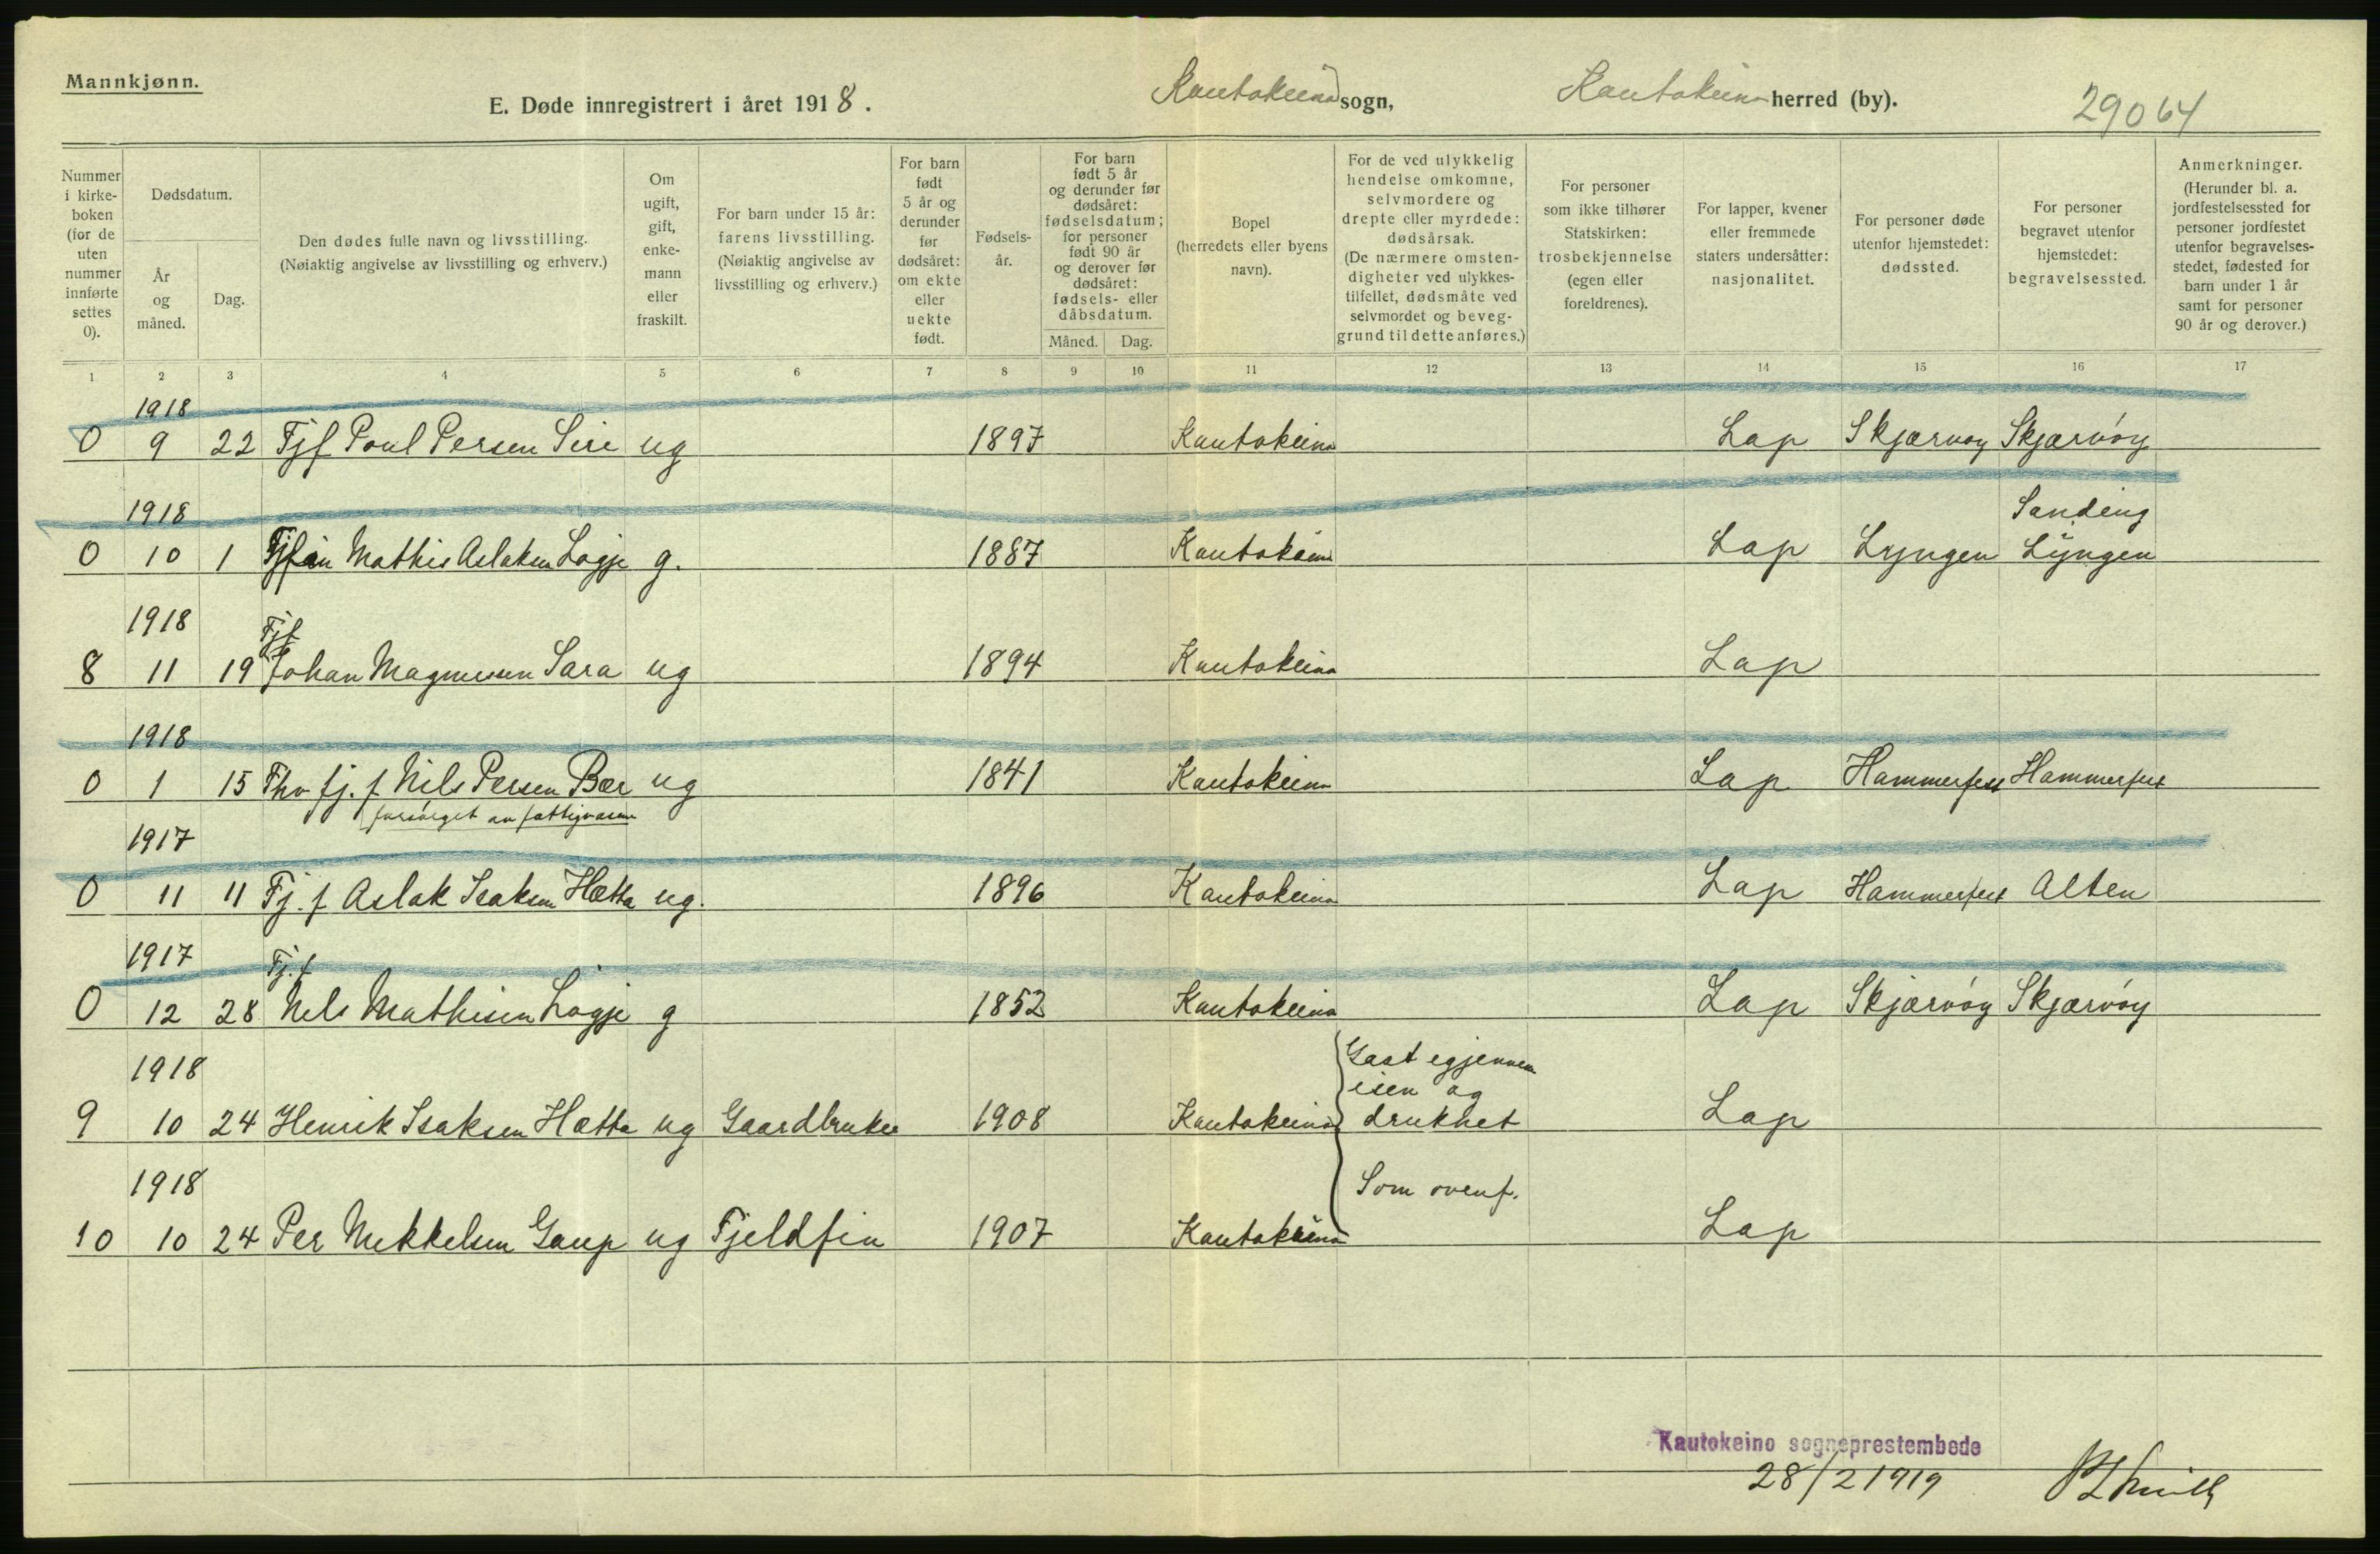 Mannkjønn.
E. Døde innregistrert i året 1918. Kautokeino sogn, Kautokeino herred (by). 29064
Nummer i kirke- boken (for de uten nummer innførte settes 0).
Dødsdatum.
År og måned.
Dag.
Den dødes fulle navn og livsstilling.
(Nøiaktig angivelse av livsstilling og erhverv.)
Om ugift, gift, enke- mann eller fraskilt.
For barn under 15 år: farens livsstilling. (Nøiaktig angivelse av livsstilling og erhverv.)
For barn født 5 år og derunder før dødsåret: om ekte eller uekte født.
Fødsels- år.
For barn født 5 år og derunder før dødsåret: fødselsdatum; for personer født 90 år og derover før dødsåret: fødsels- eller dåbsdatum.
Måned. Dag.
Bopel (herredets eller byens navn).
For de ved ulykkelig hendelse omkomne, selvmordere og drepte eller myrdede: dødsårsak. (De nærmere omsten- digheter ved ulykkes- tilfellet, dødsmåte ved selvmordet og beveg- grund til dette anføres.)
For personer som ikke tilhører Statskirken: trosbekjennelse (egen eller foreldrenes).
For lapper, kvener eller fremmede staters undersåtter: nasjonalitet.
For personer døde utenfor hjemstedet: dødssted.
For personer begravet utenfor hjemstedet: begravelsessted.
Anmerkninger. (Herunder bl. a. jordfestelsessted for personer jordfestet utenfor begravelses- stedet, fødested for barn under 1 år samt for personer 90 år og derover.)
1 2 3 4 5 6 7 8 9 10 11 12 13 14 15 16 17
1918
0 9 22 Fjf Poul Persen Siri ug 1897 Kautokeino Lap Skjærvøy Skjærvöy
1918 Sanding
0 10 1 Mathis Aslaksen Logje g. 1887 Kautokeino Lap Lyngen Lyngen
1918 Fjf
8 11 19 Johan Magnussen Sara ug 1894 Kautokeino Lap
1918
0 1 15 Fhv fj. f Nils Persen Bær ug 1841 Kautokeino Lap Hammerfest Hammerfest
forsörget av fattigvæsen
1917
0 11 11 Fj. f Aslak Isaksen Hætta ug. 1896 Kautokeino Lap Hammerfest Alten
1917 Fj. f
0 12 28 Nils Mathisen Logje g 1852 Kautokeino Lap Skjærvöy Skjærvöy
1918 Gaat igjennem
isen og
9 10 24 Henrik Isaksen Hætta ug Gaardbruker 1908 Kautokeino druknet Lap
1918 Som ovenf.
10 10 24 Per Mikkelsen Gaup ug Fjeldfin 1907 Kautokeino Lap
Kautokeino sogneprestembede
28/2 1919